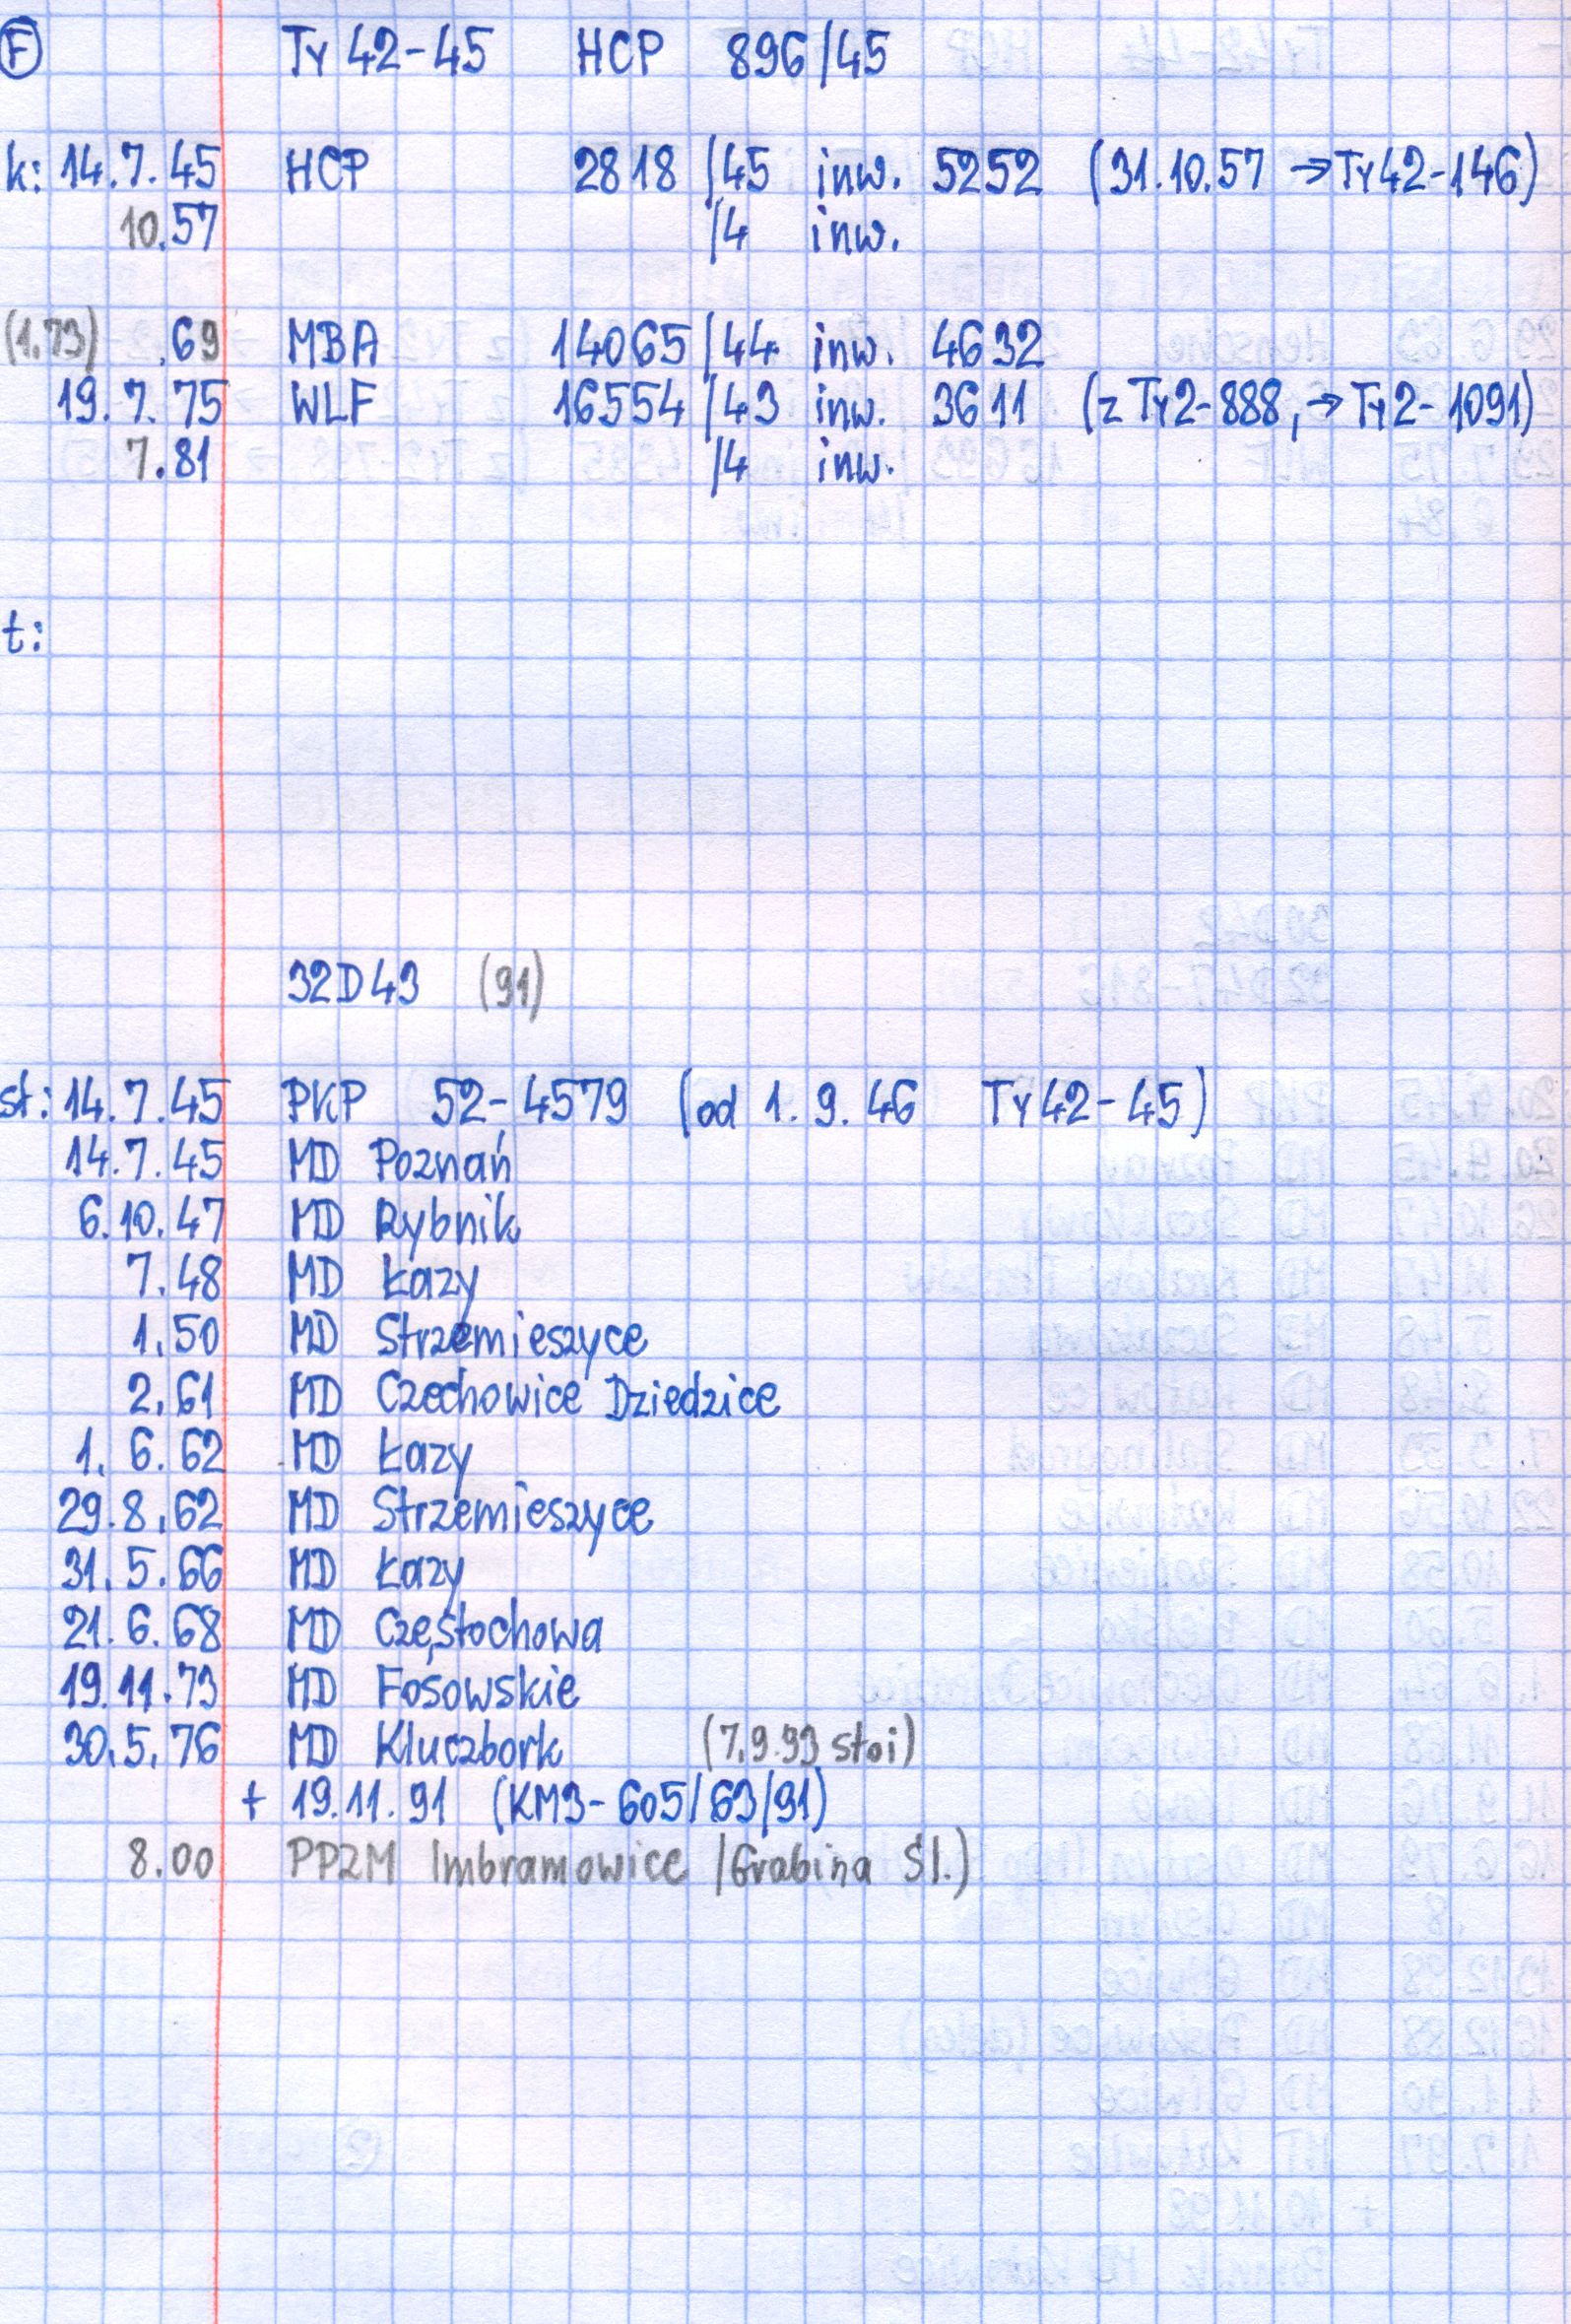 F Ty 42-45 HCP 896/45
k: 14.7.45 HCP 2818/45 inw. 5252 (31.10.57 →Ty42-146)
10.57 /4 inw.
(1.73) .69 MBA 14065/44 inw. 4632
19.7.75 WLF 16554/43 inw. 3611 (z Ty2-888, →Ty2-1091)
7.81 /4 inw.
t:
32D43 (91)
st: 14.7.45 PKP 52-4579 (od 1.9.46 Ty42-45)
14.7.45 MD Poznań
6.10.47 MD Rybnik
7.48 MD Łazy
1.50 MD Strzemieszyce
2.61 MD Czechowice Dziedzice
1.6.62 MD Łazy
29.8.62 MD Strzemieszyce
31.5.66 MD Łazy
21.6.68 MD Częstochowa
19.11.73 MD Fosowskie
30.5.76 MD Kluczbork (7.9.93 stoi)
+ 19.11.91 (KM3-605/63/91)
8.00 PPZM Imbramowice /Grabina Śl.)